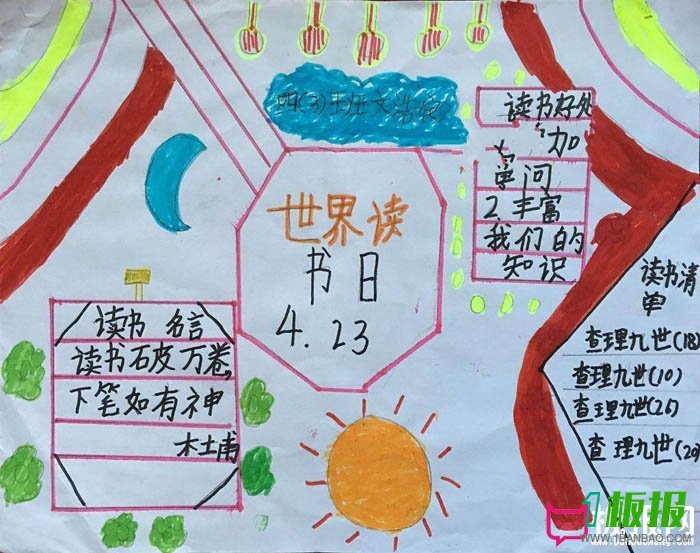 四(3)班文浩宸
世界读
书日
4.23
读书好处
加
学问
2.丰富
我们的
知识
读书 名言
读书破万卷,
下笔如有神
木土甫
读书清
单
查理九世(18)
查理九世(10)
查理九世(26)
查理九世(20)
1板报
WWW.1BANBAO.COM